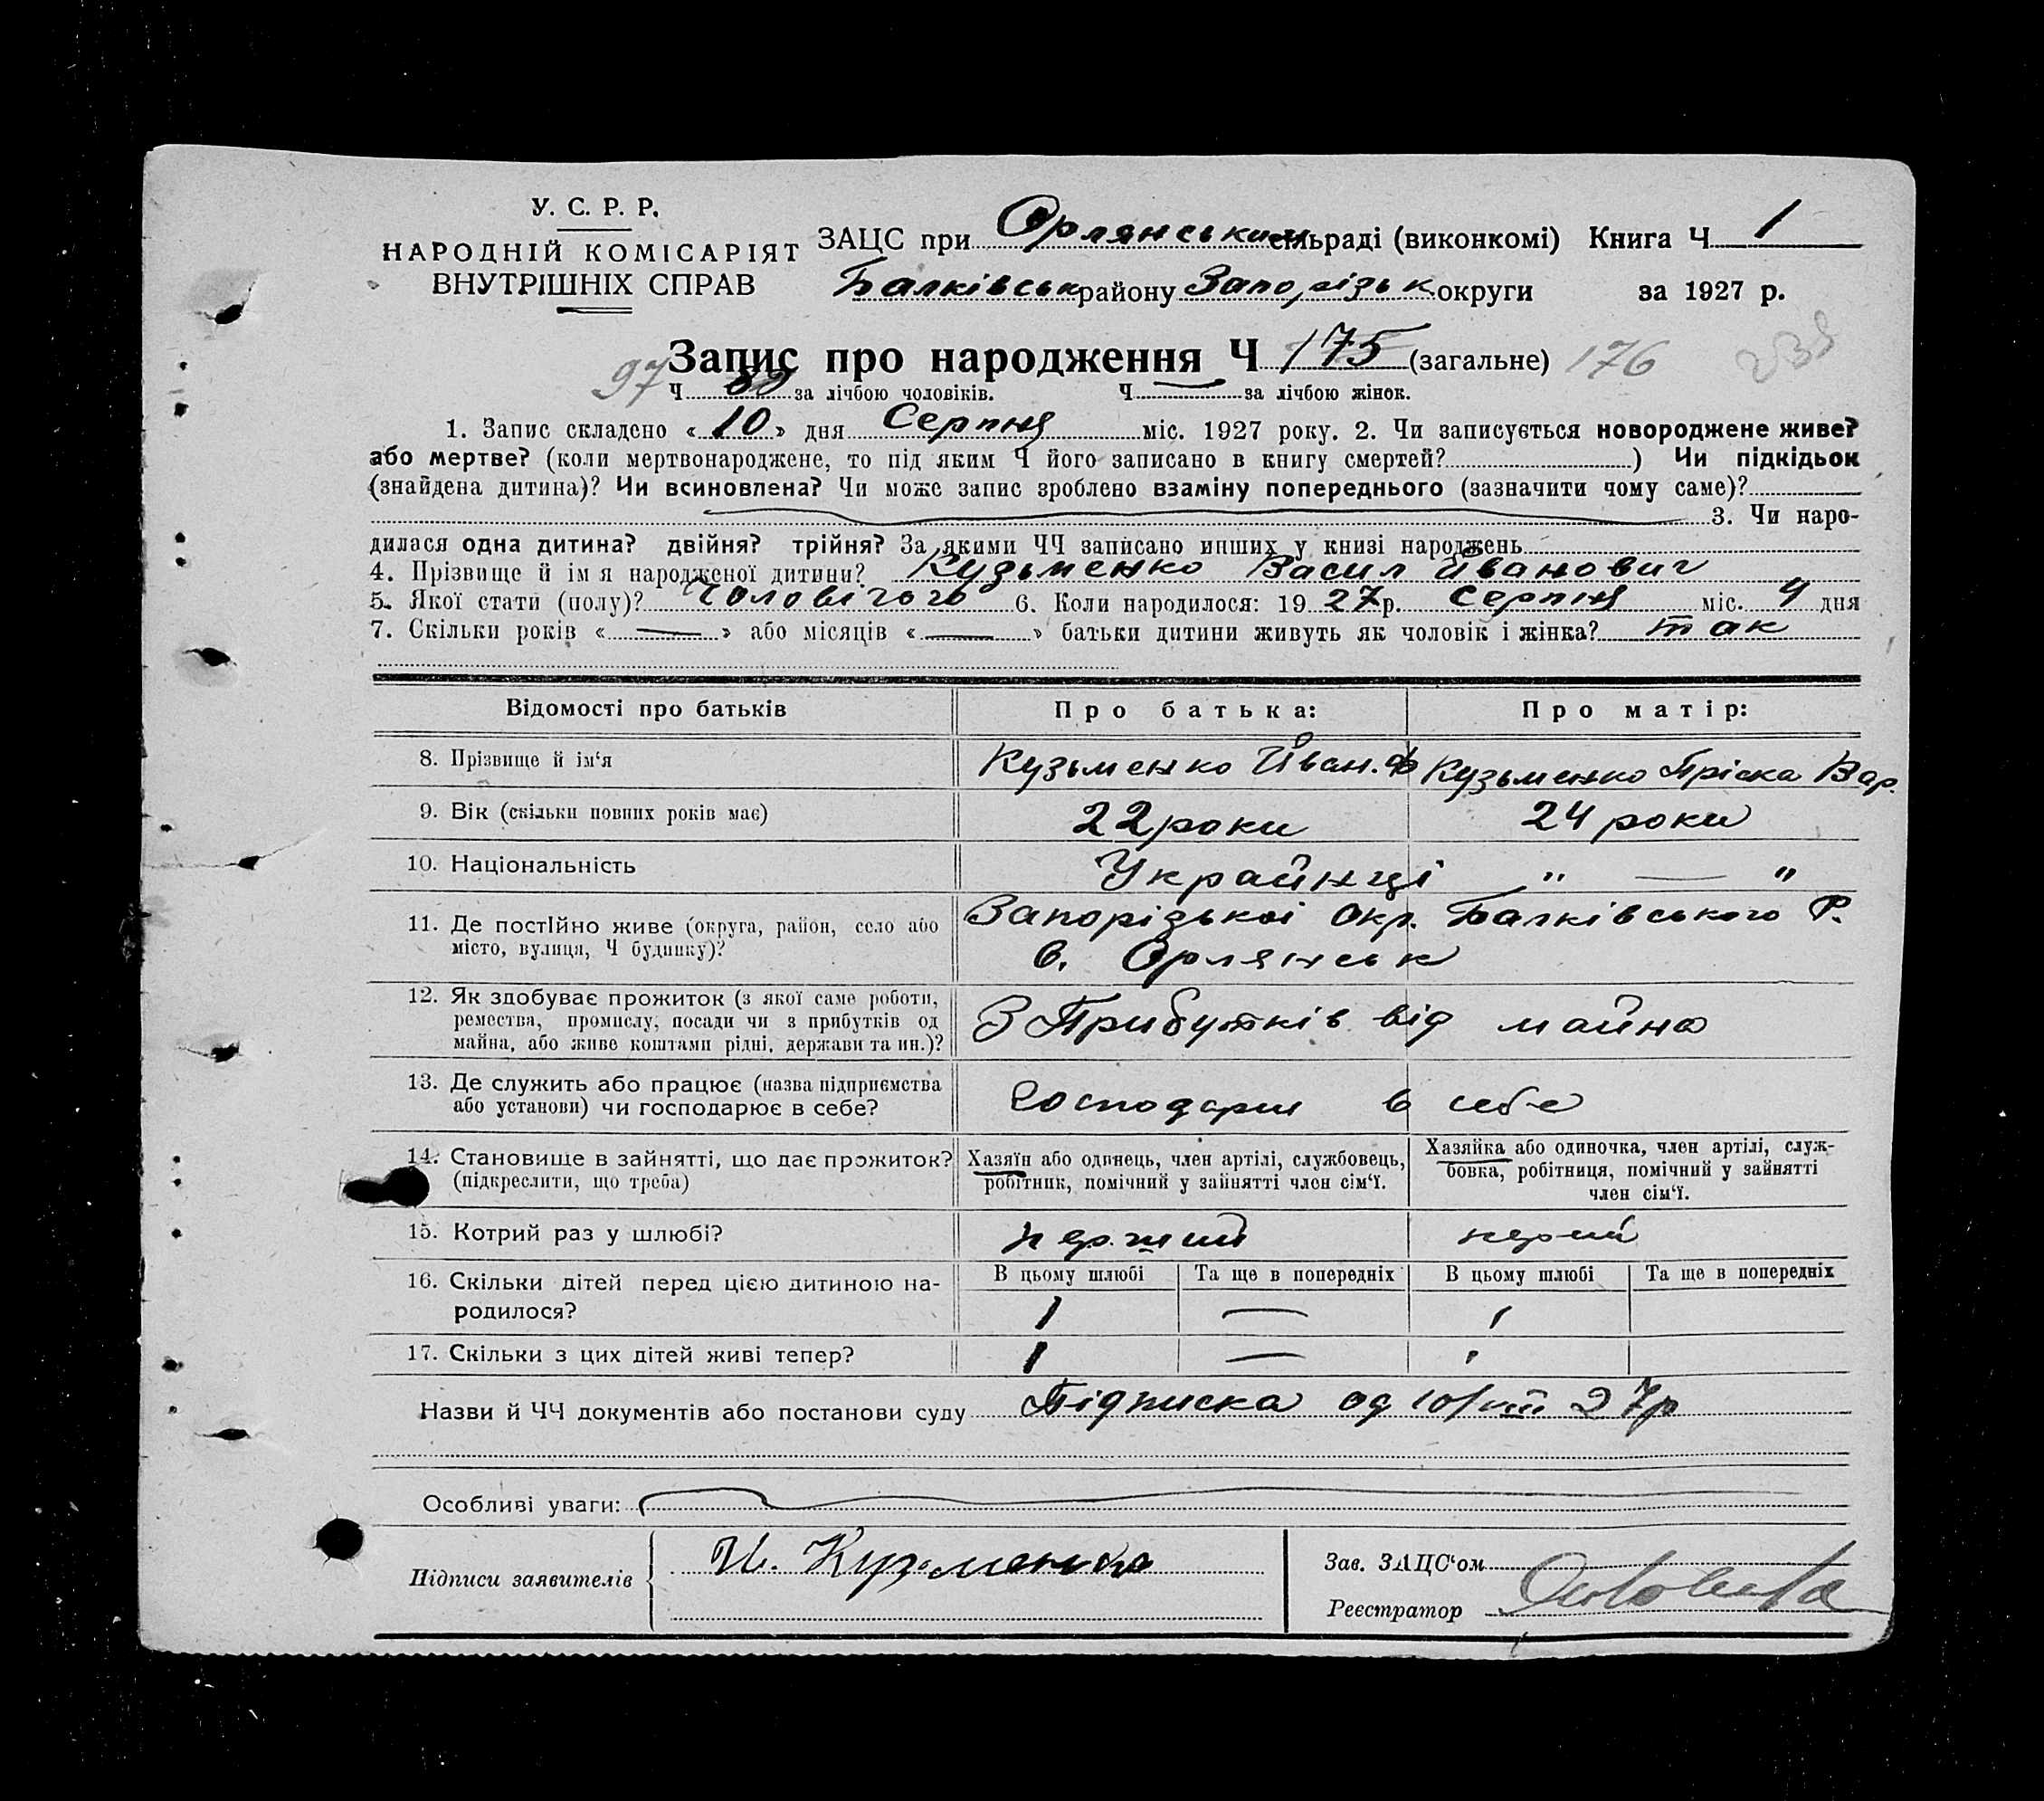 У. С. Р. Р.
НАРОДНІЙ КОМІСАРІЯТ
ВНУТРІШНІХ СПРАВ
ЗАЦС при Орлянським сільраді (виконкомі) Книга Ч 1
Балківськ району Запорізьк округи за 1927 р.
Запис про народження Ч 175 (загальне) 176
97 Ч за лічбою чоловіків. Ч — за лічбою жінок.
1. Запис складено « 10 » дня Серпня міс. 1927 року. 2. Чи записується новороджене живе?
або мертве? (коли мертвонароджене, то під яким Ч його записано в книгу смертей? ) Чи підкідьок
(знайдена дитина)? Чи всиновлена? Чи може запис зроблено взаміну попереднього (зазначити чому саме)?
3. Чи наро-
дилася одна дитина? двійня? трійня? За якими ЧЧ записано инших у книзі народжень
4. Прізвище й імя народженої дитини? Кузьменко Васил Иванович
5. Якої стати (полу)? Чоловічого 6. Коли народилося: 1927 р. Серпня міс. 9 дня
7. Скільки років « — » або місяців « — » батьки дитини живуть як чоловік і жінка? так
Відомості про батьків Про батька: Про матір:
8. Прізвище й ім‘я Кузьменко Йван. Ф Кузьменко Пріска Вар.
9. Вік (скільки повних років має) 22 роки 24 роки
10. Національність Українці " — "
11. Де постійно живе (округа, район, село або Запорізької Окр. Балківського Р.
місто, вулиця, Ч будинку)? с. Орлянськ
12. Як здобуває прожиток (з якої саме роботи,
ремества, промислу, посади чи з прибутків од З Прибутків від майна
майна, або живе коштами рідні, держави та ин.)?
13. Де служить або працює (назва підприємства
або установи) чи господарює в себе? господарш в себе
14. Становище в зайнятті, що дає прожиток? Хазяїн або одинець, член артілі, службовець, Хазяйка або одиночка, член артілі, служ-
(підкреслити, що треба) робітник, помічний у зайнятті член сім‘ї. бовка, робітниця, помічний у зайнятті
член сім‘ї.
15. Котрий раз у шлюбі? перший перший
16. Скільки дітей перед цією дитиною на- В цьому шлюбі Та ще в попередніх В цьому шлюбі Та ще в попередніх
родилося? 1 — 1
17. Скільки з цих дітей живі тепер? 1 — 1
Назви й ЧЧ документів або постанови суду Підписка од 10/VIII 27р
Особливі уваги:
Підписи заявителів И. Кузьменко
Зав. ЗАЦС‘ом
Реєстратор